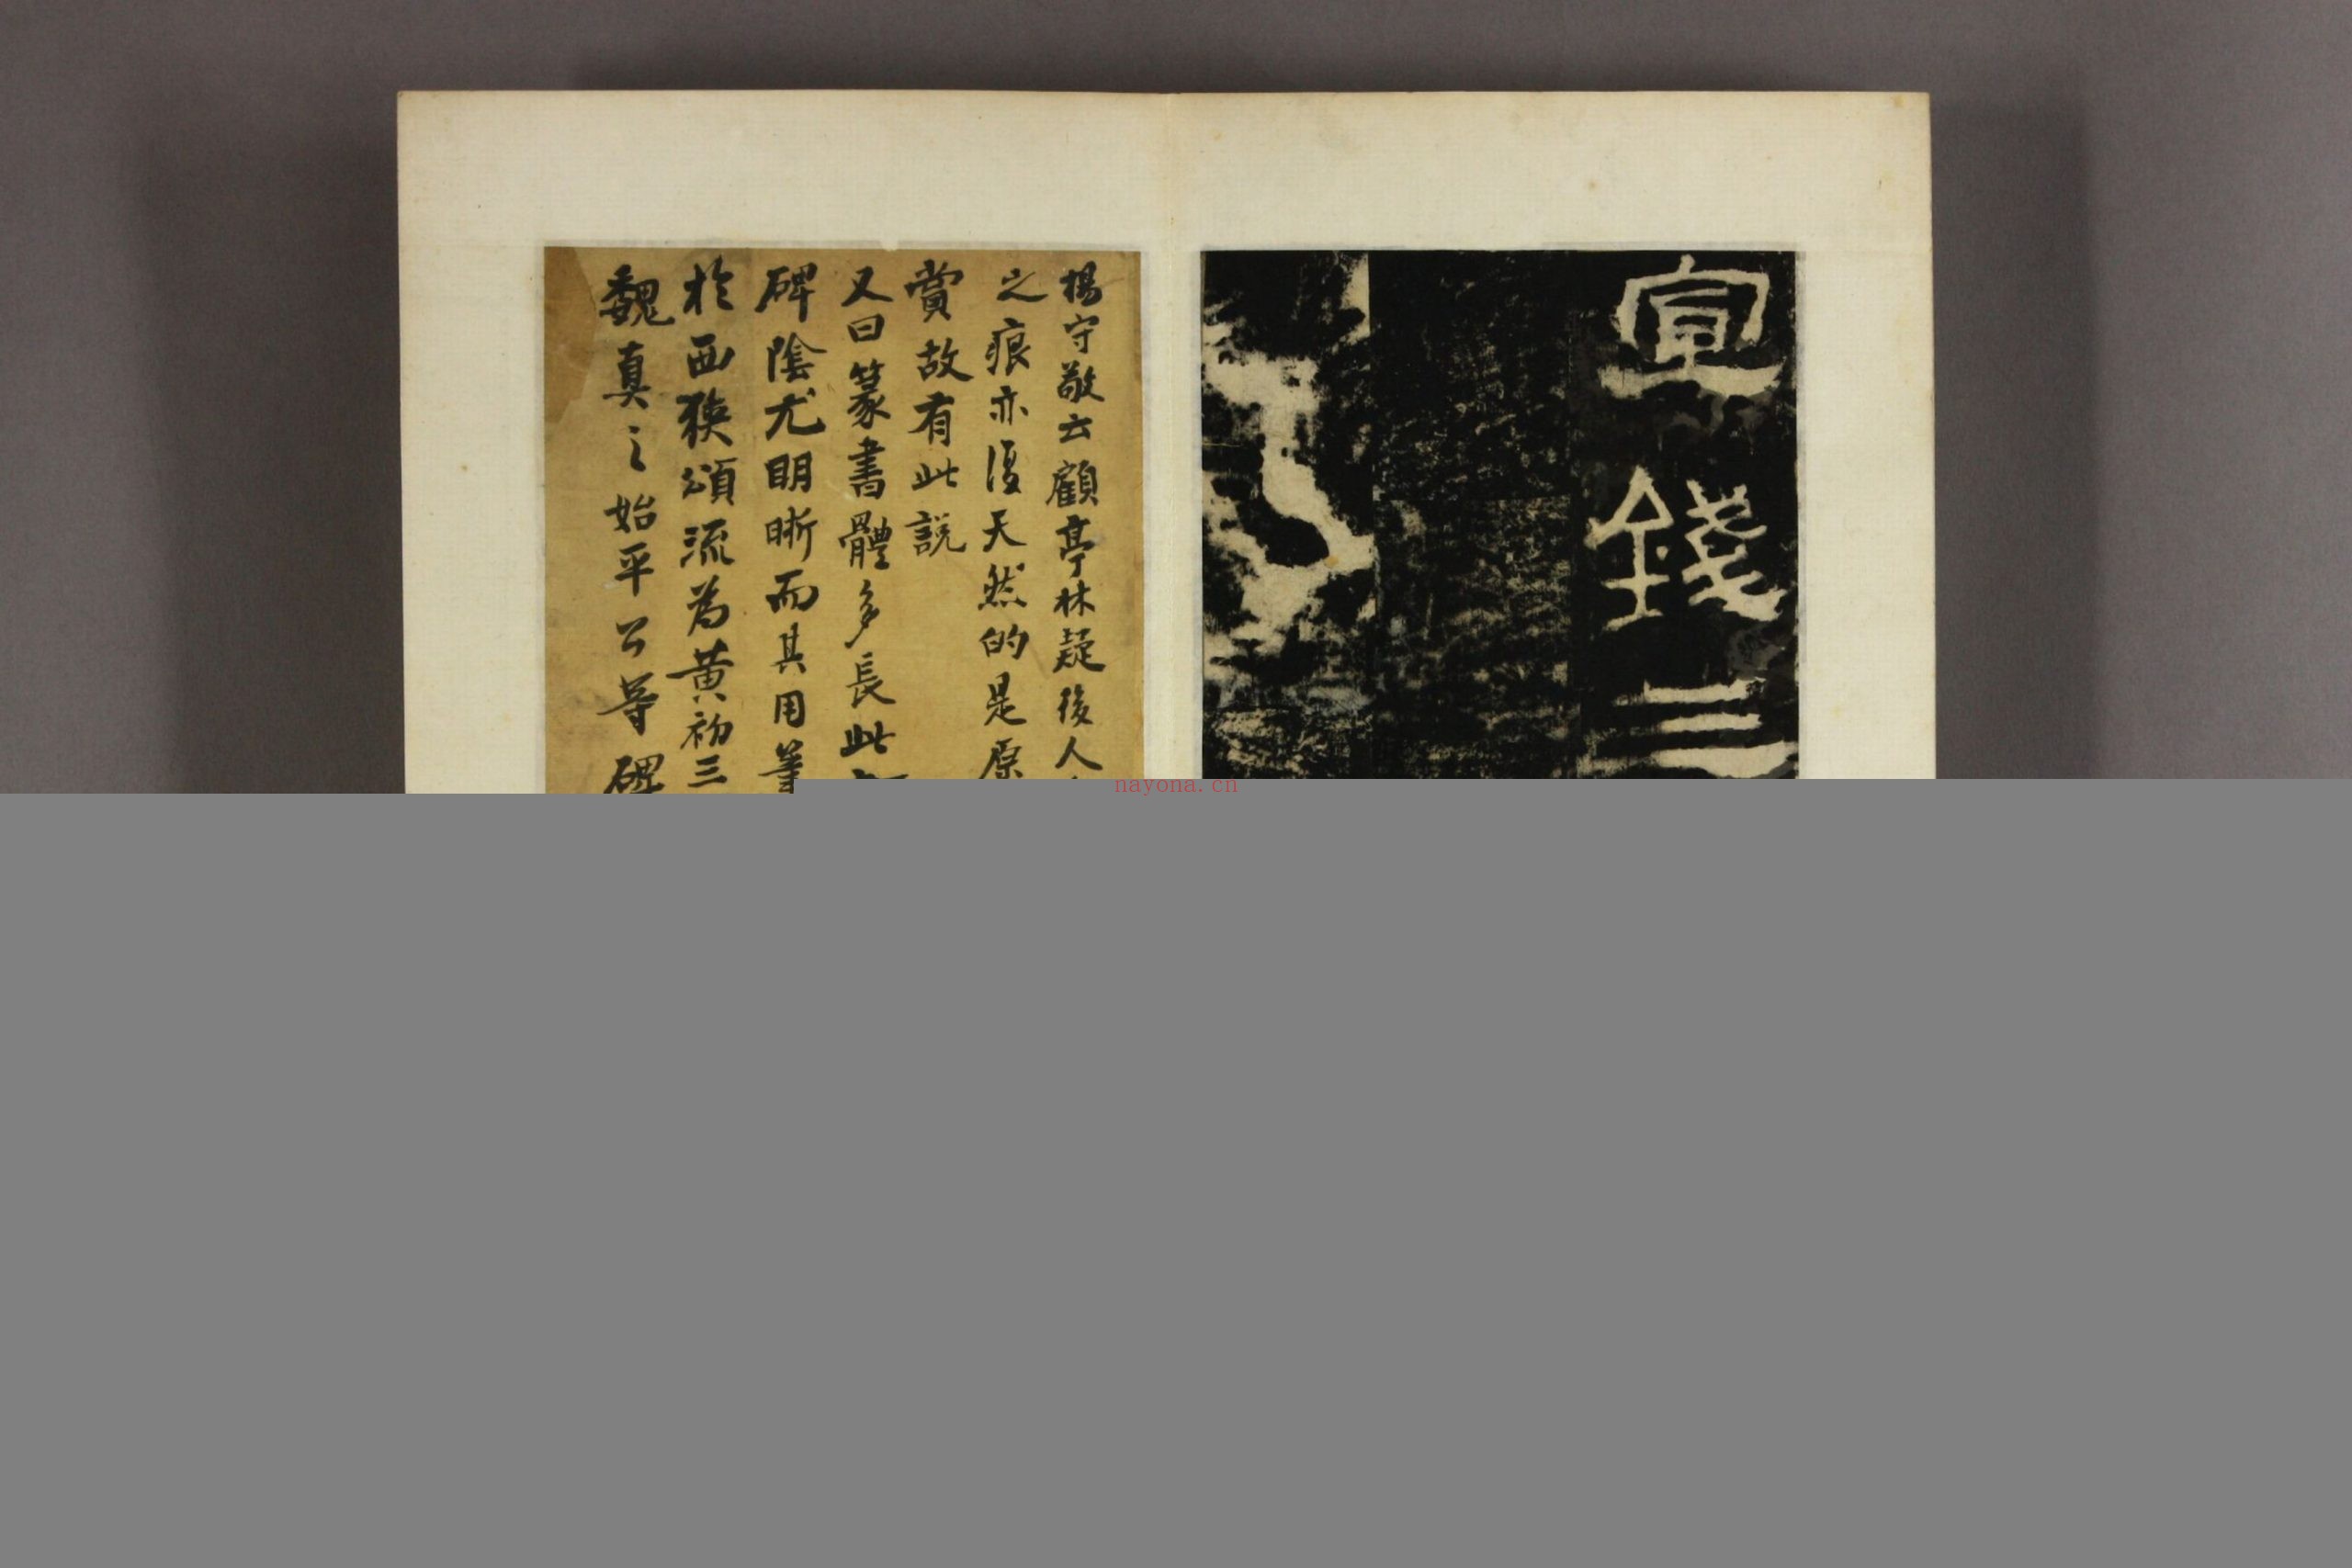 宣錢三
楊守敬云顧亭林疑後人
之痕亦復天然的是原
賞故有此説
又曰篆書體多長此
碑陰尤明晰而其用筆
於西狹頌流為黃初三
魏真之始平公等碑
nayona.cn